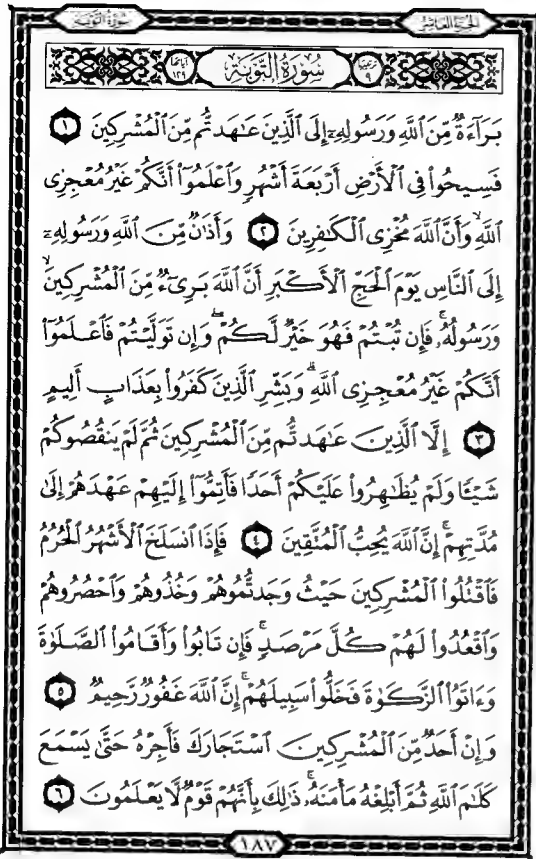 سُورَةُ التَّوْبَةِ
الجزء العاشر
ترتيبها ٩
سُورَةُ التَّوْبَةِ
آياتها ١٢٩
بَرَآءَةٌ مِّنَ ٱللَّهِ وَرَسُولِهِۦٓ إِلَى ٱلَّذِينَ عَٰهَدتُّم مِّنَ ٱلْمُشْرِكِينَ ١
فَسِيحُوا۟ فِى ٱلْأَرْضِ أَرْبَعَةَ أَشْهُرٍ وَٱعْلَمُوٓا۟ أَنَّكُمْ غَيْرُ مُعْجِزِى
ٱللَّهِ ۙ وَأَنَّ ٱللَّهَ مُخْزِى ٱلْكَٰفِرِينَ ٢ وَأَذَٰنٌ مِّنَ ٱللَّهِ وَرَسُولِهِۦٓ
إِلَى ٱلنَّاسِ يَوْمَ ٱلْحَجِّ ٱلْأَكْبَرِ أَنَّ ٱللَّهَ بَرِىٓءٌ مِّنَ ٱلْمُشْرِكِينَ ۙ
وَرَسُولُهُۥ ۚ فَإِن تُبْتُمْ فَهُوَ خَيْرٌ لَّكُمْ ۖ وَإِن تَوَلَّيْتُمْ فَٱعْلَمُوٓا۟
أَنَّكُمْ غَيْرُ مُعْجِزِى ٱللَّهِ ۗ وَبَشِّرِ ٱلَّذِينَ كَفَرُوا۟ بِعَذَابٍ أَلِيمٍ
٣ إِلَّا ٱلَّذِينَ عَٰهَدتُّم مِّنَ ٱلْمُشْرِكِينَ ثُمَّ لَمْ يَنقُصُوكُمْ
شَيْـًٔا وَلَمْ يُظَٰهِرُوا۟ عَلَيْكُمْ أَحَدًا فَأَتِمُّوٓا۟ إِلَيْهِمْ عَهْدَهُمْ إِلَىٰ
مُدَّتِهِمْ ۚ إِنَّ ٱللَّهَ يُحِبُّ ٱلْمُتَّقِينَ ٤ فَإِذَا ٱنسَلَخَ ٱلْأَشْهُرُ ٱلْحُرُمُ
فَٱقْتُلُوا۟ ٱلْمُشْرِكِينَ حَيْثُ وَجَدتُّمُوهُمْ وَخُذُوهُمْ وَٱحْصُرُوهُمْ
وَٱقْعُدُوا۟ لَهُمْ كُلَّ مَرْصَدٍ ۚ فَإِن تَابُوا۟ وَأَقَامُوا۟ ٱلصَّلَوٰةَ
وَءَاتَوُا۟ ٱلزَّكَوٰةَ فَخَلُّوا۟ سَبِيلَهُمْ ۚ إِنَّ ٱللَّهَ غَفُورٌ رَّحِيمٌ ٥
وَإِنْ أَحَدٌ مِّنَ ٱلْمُشْرِكِينَ ٱسْتَجَارَكَ فَأَجِرْهُ حَتَّىٰ يَسْمَعَ
كَلَٰمَ ٱللَّهِ ثُمَّ أَبْلِغْهُ مَأْمَنَهُۥ ۚ ذَٰلِكَ بِأَنَّهُمْ قَوْمٌ لَّا يَعْلَمُونَ ٦
١٨٧